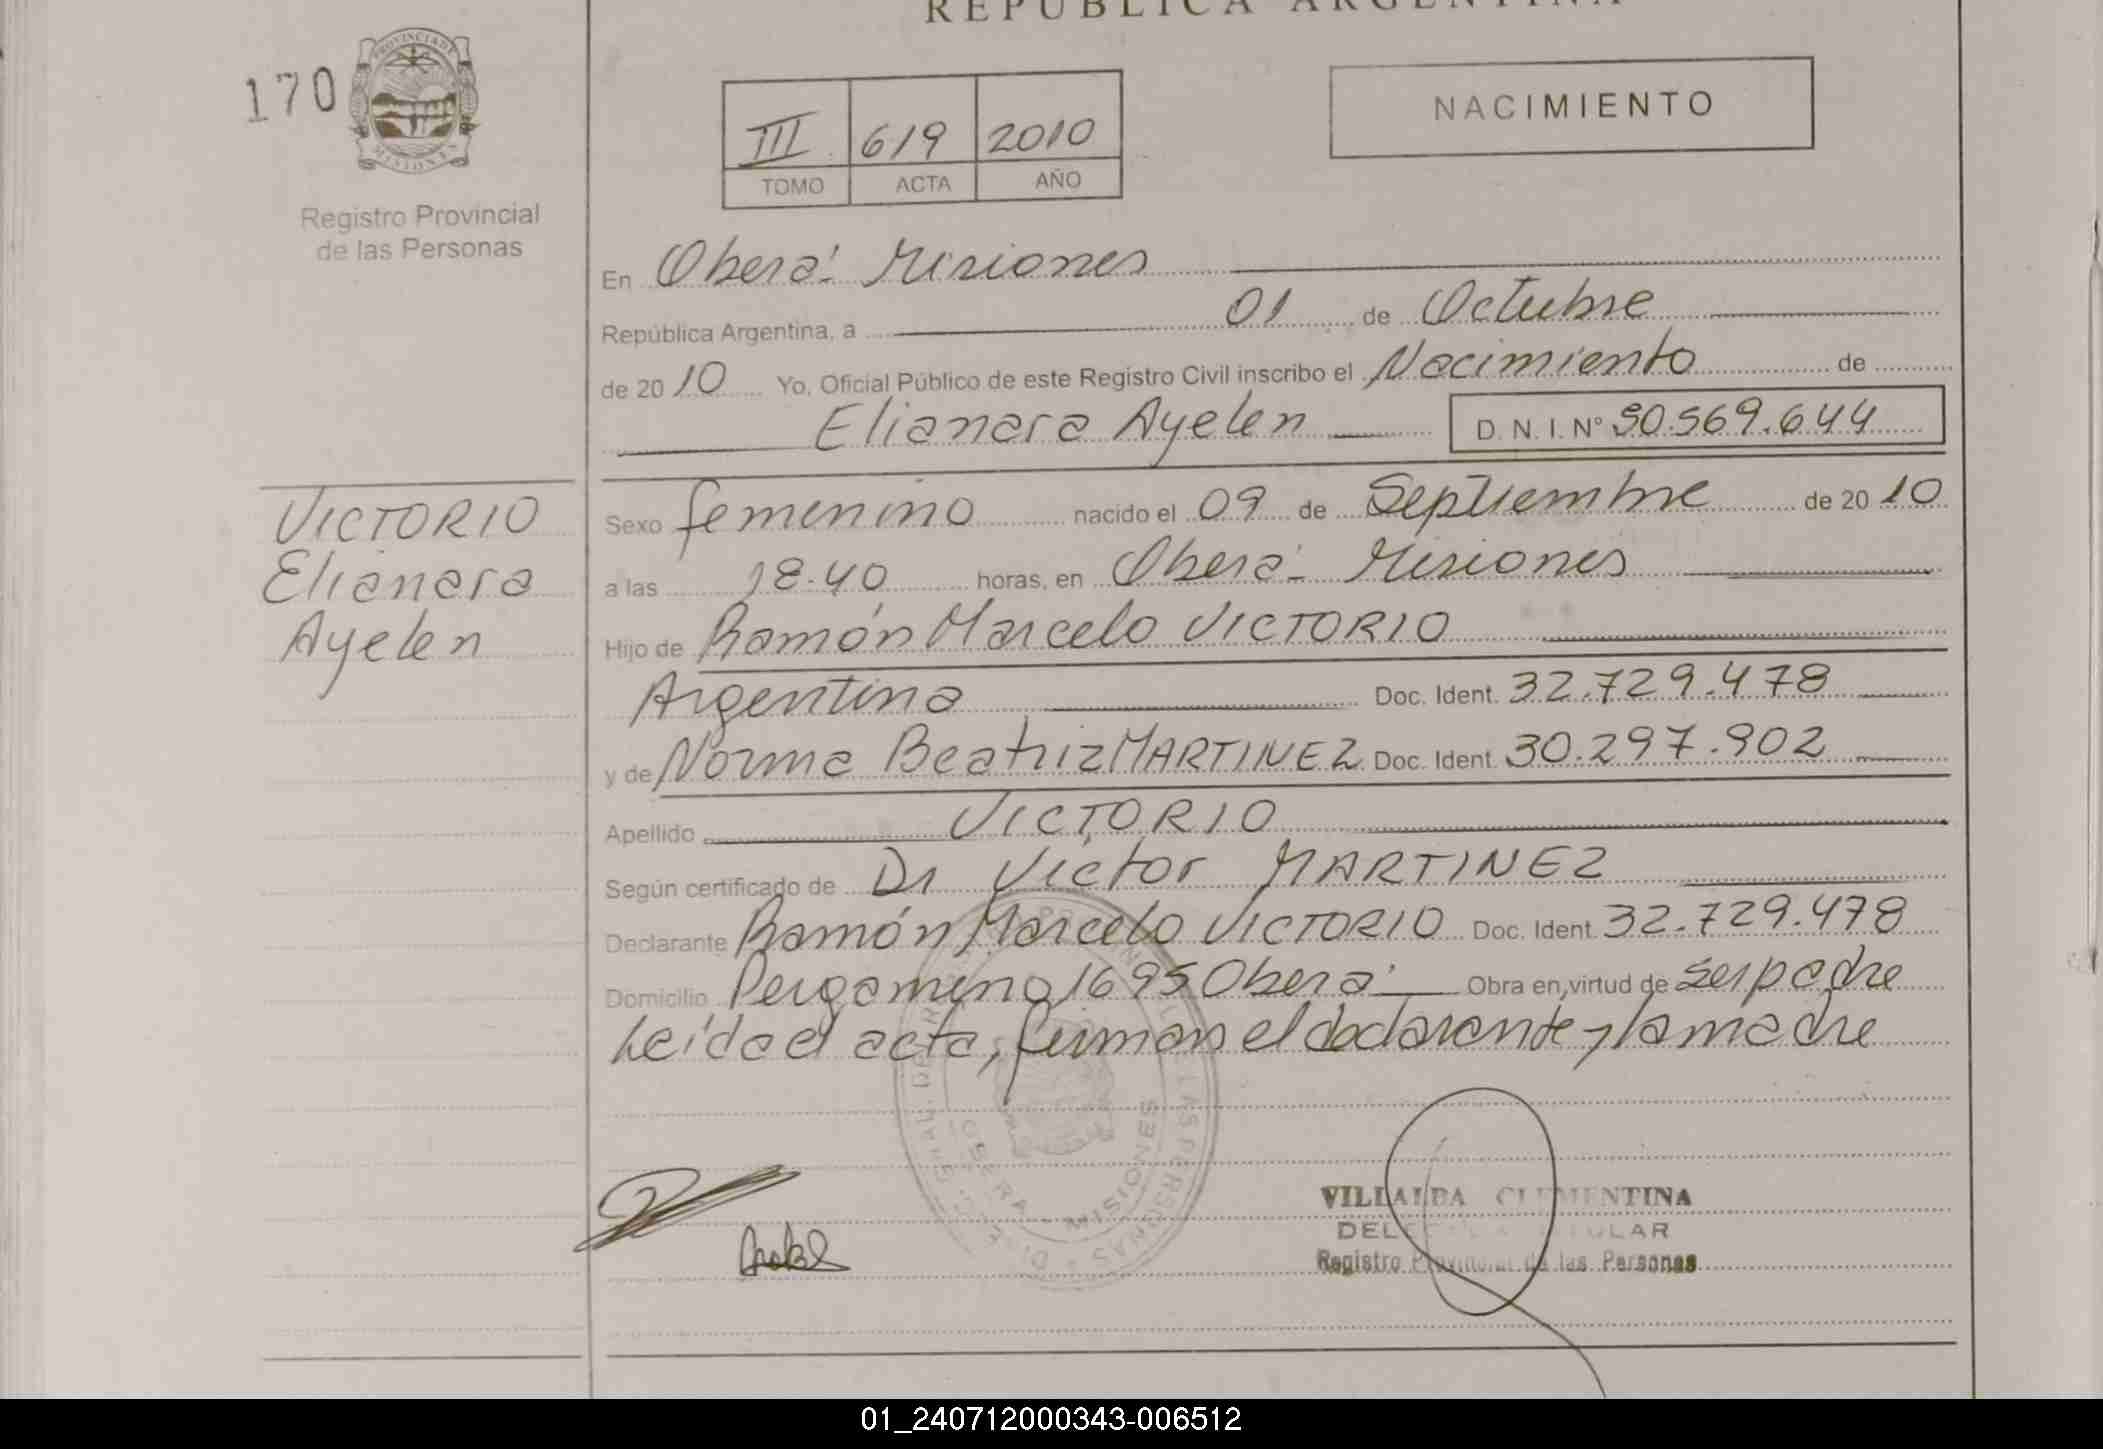 REPUBLICA ARGENTINA
170
PROVINCIA DE
MISIONES
Registro Provincial
de las Personas
III 619 2010
TOMO ACTA AÑO
NACIMIENTO
En Oberá - Misiones
República Argentina, a 01 de Octubre
de 2010 Yo, Oficial Público de este Registro Civil inscribo el Nacimiento de
Elianara Ayelen D. N. I. Nº 50.569.644
VICTORIO
Elianara
Ayelen
Sexo femenino nacido el 09 de Septiembre de 2010
a las 18.40 horas, en Oberá - Misiones
Hijo de Ramón Marcelo VICTORIO
Argentina Doc. Ident. 32.729.478
y de Norma Beatriz MARTINEZ Doc. Ident. 30.297.902
Apellido VICTORIO
Según certificado de Dr Victor MARTINEZ
Declarante Ramón Marcelo VICTORIO Doc. Ident. 32.729.478
Domicilio Pergamino 1695 Oberá Obra en virtud de ser padre
Leída el acta, firman el declarante y la madre
OBERA - MISIONES
VILLALBA CLEMENTINA
Registro Provincial de las Personas
01_240712000343-006512